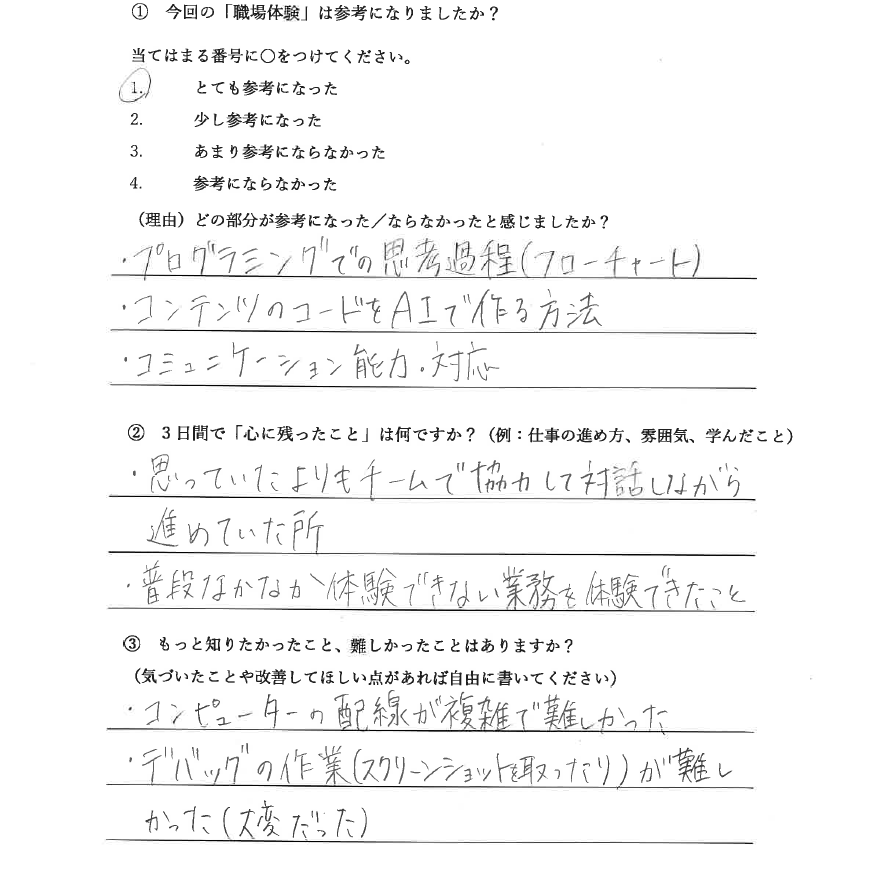 ① 今回の「職場体験」は参考になりましたか？
当てはまる番号に○をつけてください。
1. とても参考になった
2. 少し参考になった
3. あまり参考にならなかった
4. 参考にならなかった
（理由）どの部分が参考になった／ならなかったと感じましたか？
・プログラミングでの思考過程(フローチャート)
・コンテンツのコードをAIで作る方法
・コミュニケーション能力・対応
② 3日間で「心に残ったこと」は何ですか？（例：仕事の進め方、雰囲気、学んだこと）
・思っていたよりもチームで協力して対話しながら
進めていた所
・普段なかなか体験できない業務を体験できたこと
③ もっと知りたかったこと、難しかったことはありますか？
（気づいたことや改善してほしい点があれば自由に書いてください）
・コンピューターの配線が複雑で難しかった
・デバッグの作業(スクリーンショットを取ったり)が難し
かった(大変だった)